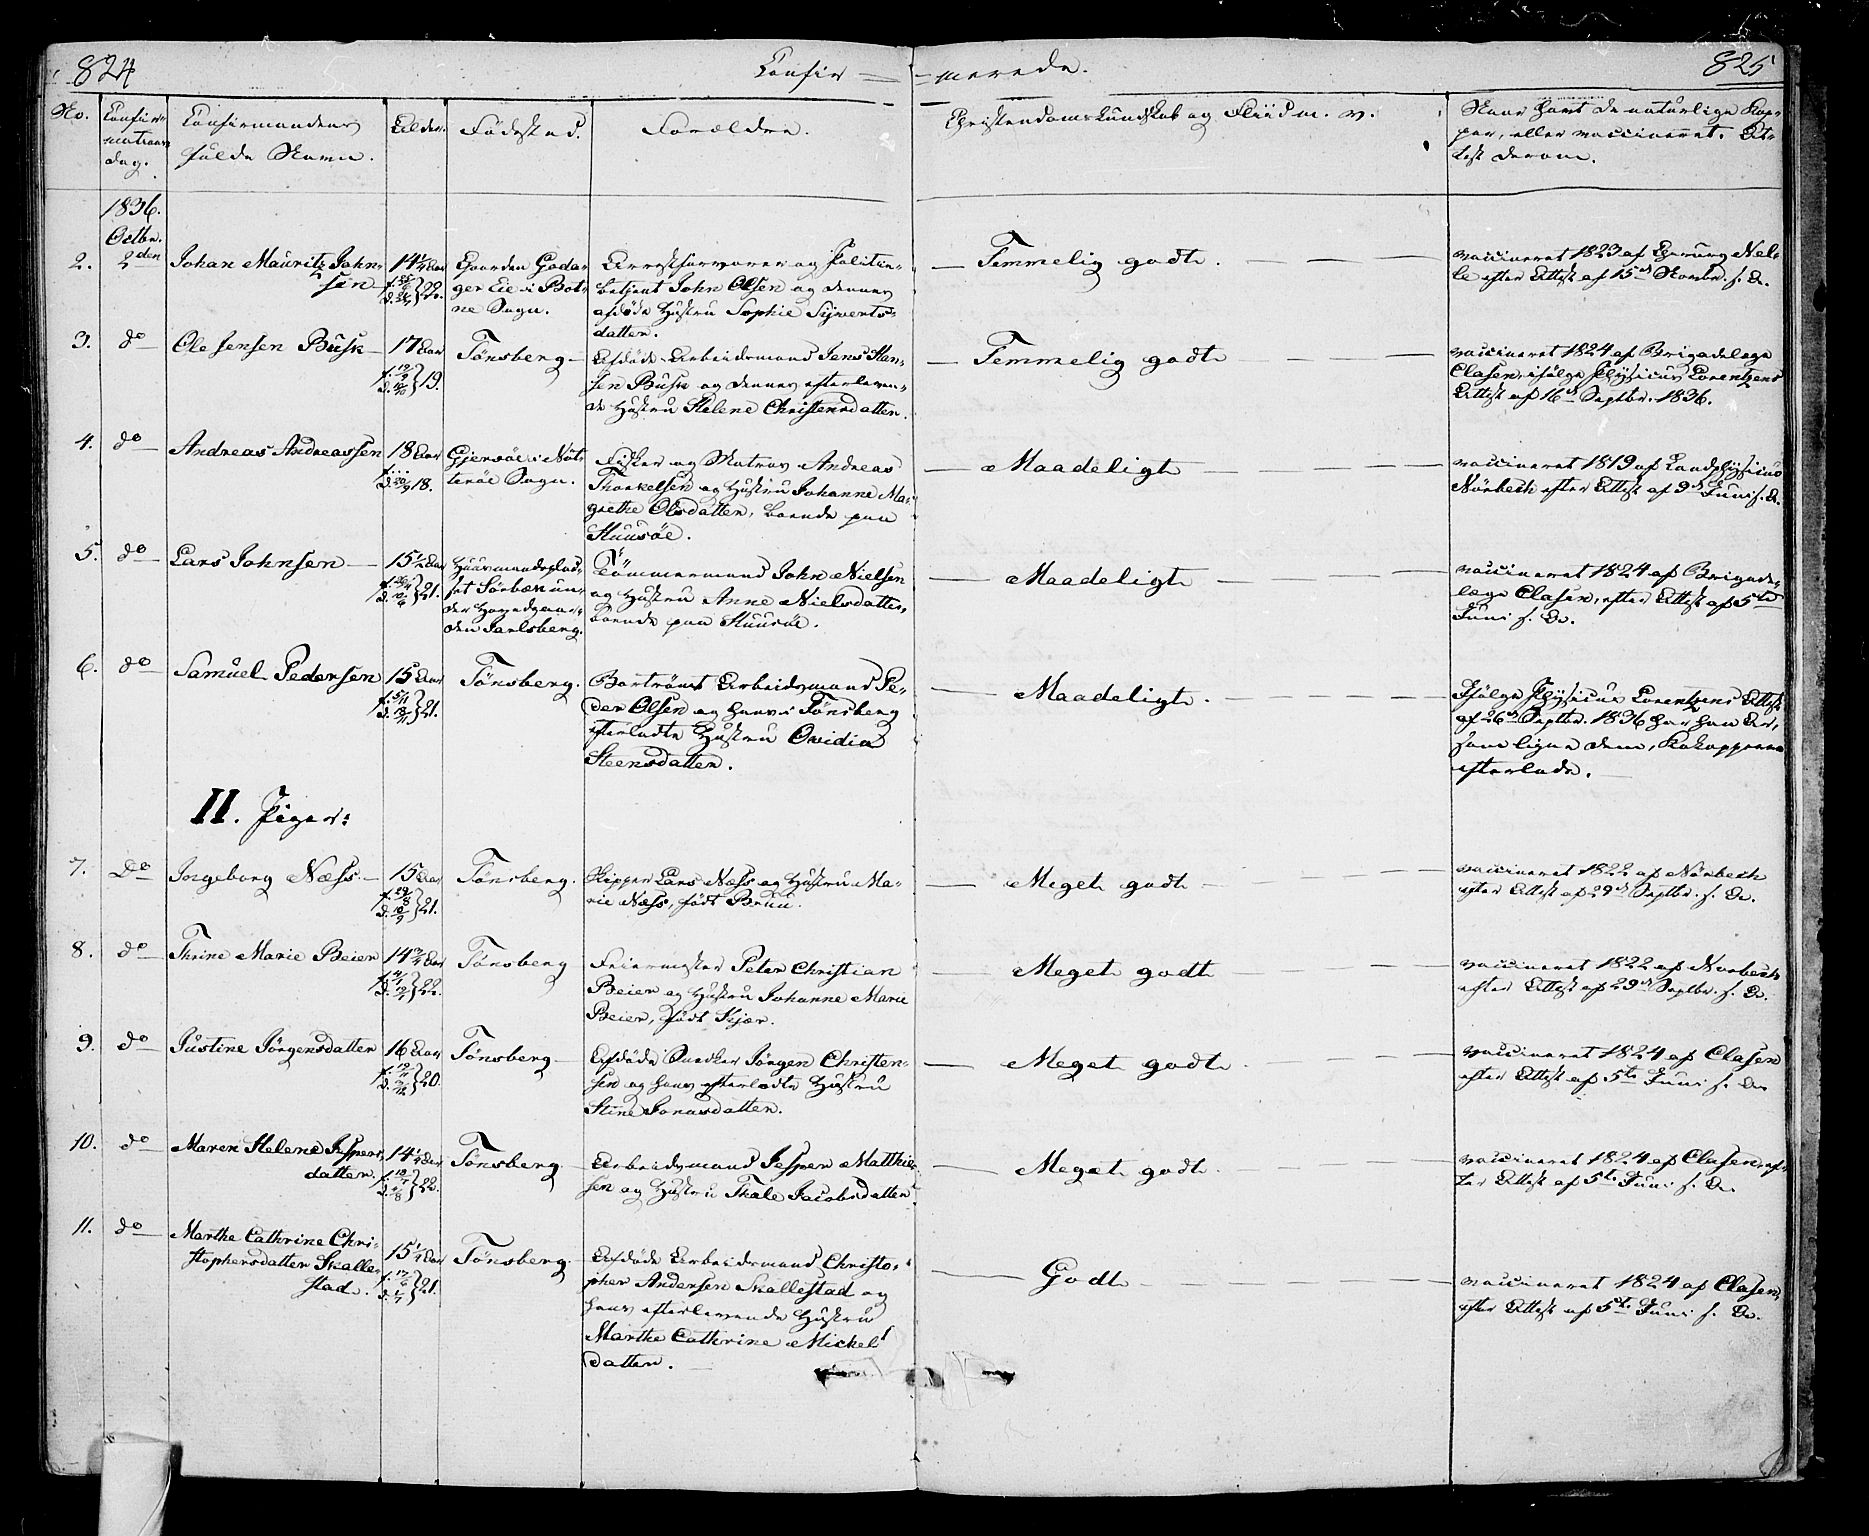 824
Confir-
-merede.
825
No.
Confir-
mations
dag.
Confirmandens
fulde Navn.
Alder.
Fødested.
Forældre.
Christendoms Kundskab og Fliid m. v.
Naar havt de naturlige Kop-
per, eller vaccineret. At-
test derom.
1836.
Octbr.
2.
2den
Johan Mauritz John-
sen
14 1/4 Aar
22.
Gaarden
ger Eie i Bot-
ne Sogn.
Arrestforvarer og Politie-
betjent John Olsen og dennes
afdøde Hustru Sophie Sywerts-
datter.
Temmelig godt.
vaccineret 1823 af
efter Attest af 15de Novbr. s. A.
3.
do
Ole Jensen Busk
17 Aar
19.
Tønsberg
Afdøde Arbeidsmand Jens Han-
sen Busk og dennes efterleven-
de Hustru Helene Christensdatter.
Temmelig godt
vaccineret 1824 af Brigadelæge
Clasen, ifølge Physicus Lorentzens
Attest af 16de Septbr. 1836.
4.
do
Andreas Andreassen
18 Aar
18.
Gjersøe i Nøt-
terøe Sogn.
Fisker og Matros Andreas
Thorkelsen og Hustru Johanne Ma-
grethe Olsdatter, boende paa
Huusøe.
Maadeligt
vaccineret 1819 af Landphysicus
Nörbech efter Attest af 9de Juni s. A.
5.
do
Lars Johnsen
15 1/2 Aar
21.
Huusmandsplad-
set Sörbøe un-
der Hovedgaar-
den Jarlsberg.
Tömmermand John Nielsen
og Hustru Anne Nielsdatter,
boende paa Huusøe.
Maadeligt
vaccineret 1824 af Brigade-
læge Clasen, efter Attest af 5te
Juni s. A.
6.
do
Samuel Pedersen
15 Aar
21.
Tønsberg.
Bortrömt Arbeidsmand Pe-
der Olsen og hans i Tønsberg
efterladte Hustru Ovidia
Steensdatter.
Maadeligt.
Ifølge Physicus Lorentzens Attest
af 26de Septbr. 1836 har han Ar,
som ligne dem, Kokopperne
efterlade.
II. Piger:
7.
Do
Ingeborg Næss.
15 Aar
21.
Tønsberg.
Skipper Lars Næss og Hustru Ma-
rie Næss, født Bruu.
Meget godt
vaccineret 1822 af Nörbech
efter Attest af 29de Septbr. s. A.
8.
do
Thrine Marie Beier
14 3/4 Aar
22.
Tønsberg
Feiermester Peter Christian
Beier og Hustru Johanne Marie
Beier, født Kjær.
Meget godt
vaccineret 1822 af Norbech
efter Attest af 29de Septbr. s. A.
9.
do
Justine Jörgensdatter
16 Aar
20.
Tønsberg
Afdøde Snedker Jörgen Christen-
sen og hans efterladte Hustru
Stine Jonasdatter.
Meget godt
vaccineret 1824 af Clasen
efter Attest af 5te Juni s. A.
10.
do
Maren Helene Jespers-
datter.
14 1/4 Aar
22.
Tønsberg.
Arbeidsmand Jesper Matthie-
sen og Hustru Thale Jacobsdatter
Meget godt.
vaccineret 1824 af Clasen, ef-
ter Attest af 5te Juni s. A.
11.
do
Marthe Cathrine Chri-
stophersdatter Skalle-
stad.
15 1/4 Aar
21.
Tønsberg.
Afdøde Arbeidsmand Christo-
pher Andersen Skallestad og
hans efterlevende Hustru
Marthe Cathrine Mickels
datter.
Godt
vaccineret 1824 af Clasen,
efter Attest af 5te Juni s. A.